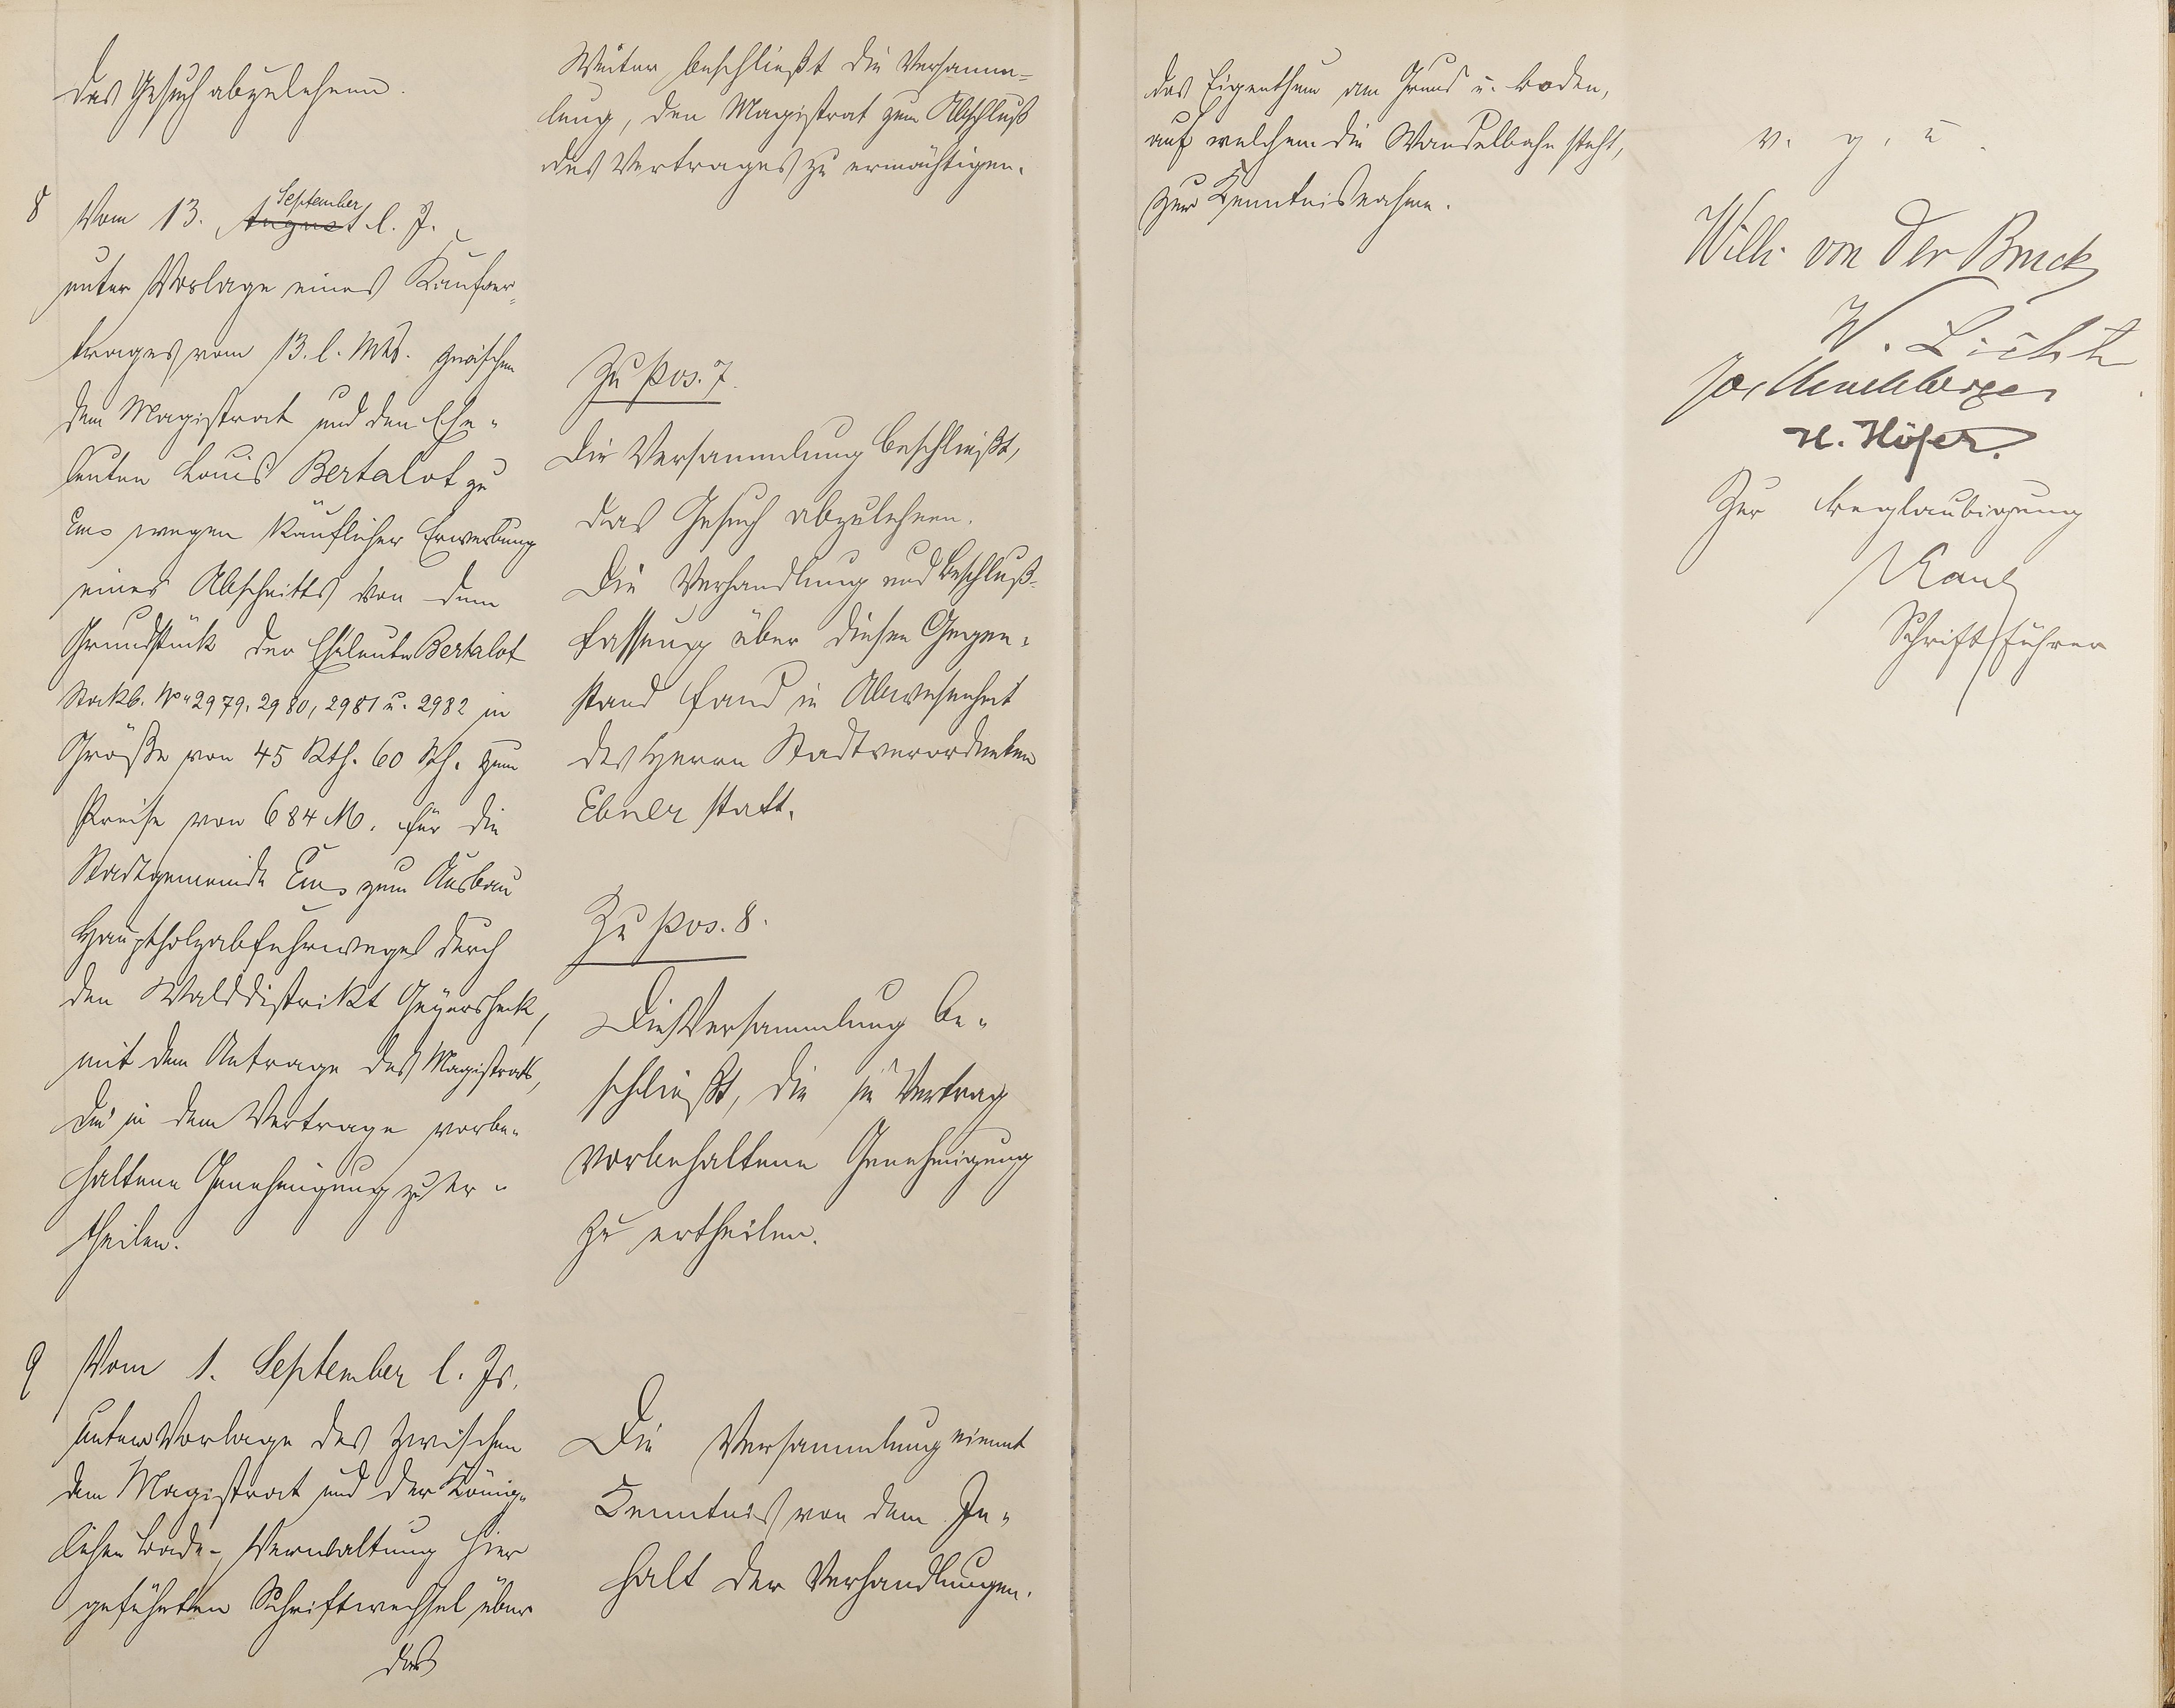 das Gesuch abzulehnen.
8 Vom 13. August September l. J.
unter Vorlage eines Kaufver-
trages vom 13. l. Mts. zwischen
dem Magistrat und den Ehe-
leuten Louis Bertalot zu
Ems wegen käuflicher Erwerbung
eines Abschnitts von dem
Grundstück der Eheleute Bertalot
Stockb. No. 2979, 2980, 2981 u. 2982 in
Größe von 45 Rth. 60 Sch. zum
Preise von 684 M. für die
Stadtgemeinde Ems zum Ausbau
Hauptholzabfuhrweges durch
den Walddistrikt Geyersheck,
mit dem Antrage des Magistrats,
die in dem Vertrage vorbe-
haltene Genehmigung zu er-
theilen.
9 Vom 1. September l. Js.
unter Vorlage des zwischen
dem Magistrat und der König-
lichen Bade-Verwaltung hier
geführten Schriftwechsel über
das
Weiter beschließt die Versamm-
lung, den Magistrat zum Abschluß
des Vertrages zu ermächtigen.
Zu pos. 7.
Die Versammlung beschließt,
das Gesuch abzulehnen.
Die Verhandlung und Beschluß-
fassung über diesen Gegen-
stand fand in Abwesenheit
des Herrn Stadtverordneten
Ebner statt.
Zu pos. 8.
Die Versammlung be-
schließt, die im Vertrag
vorbehaltene Genehmigung
zu ertheilen.
Die Versammlung nimmt
Kenntnis von dem In-
halt der Verhandlungen.
das Eigenthum am Grund u. Boden,
auf welchem die Wandelbahn steht,
zur Kenntnisnahme.
v. g. u.
Willi von der Bruck
W. Licht
Jos.
H. Höfer.
Zur Beglaubigung
Kaul
Schriftführer